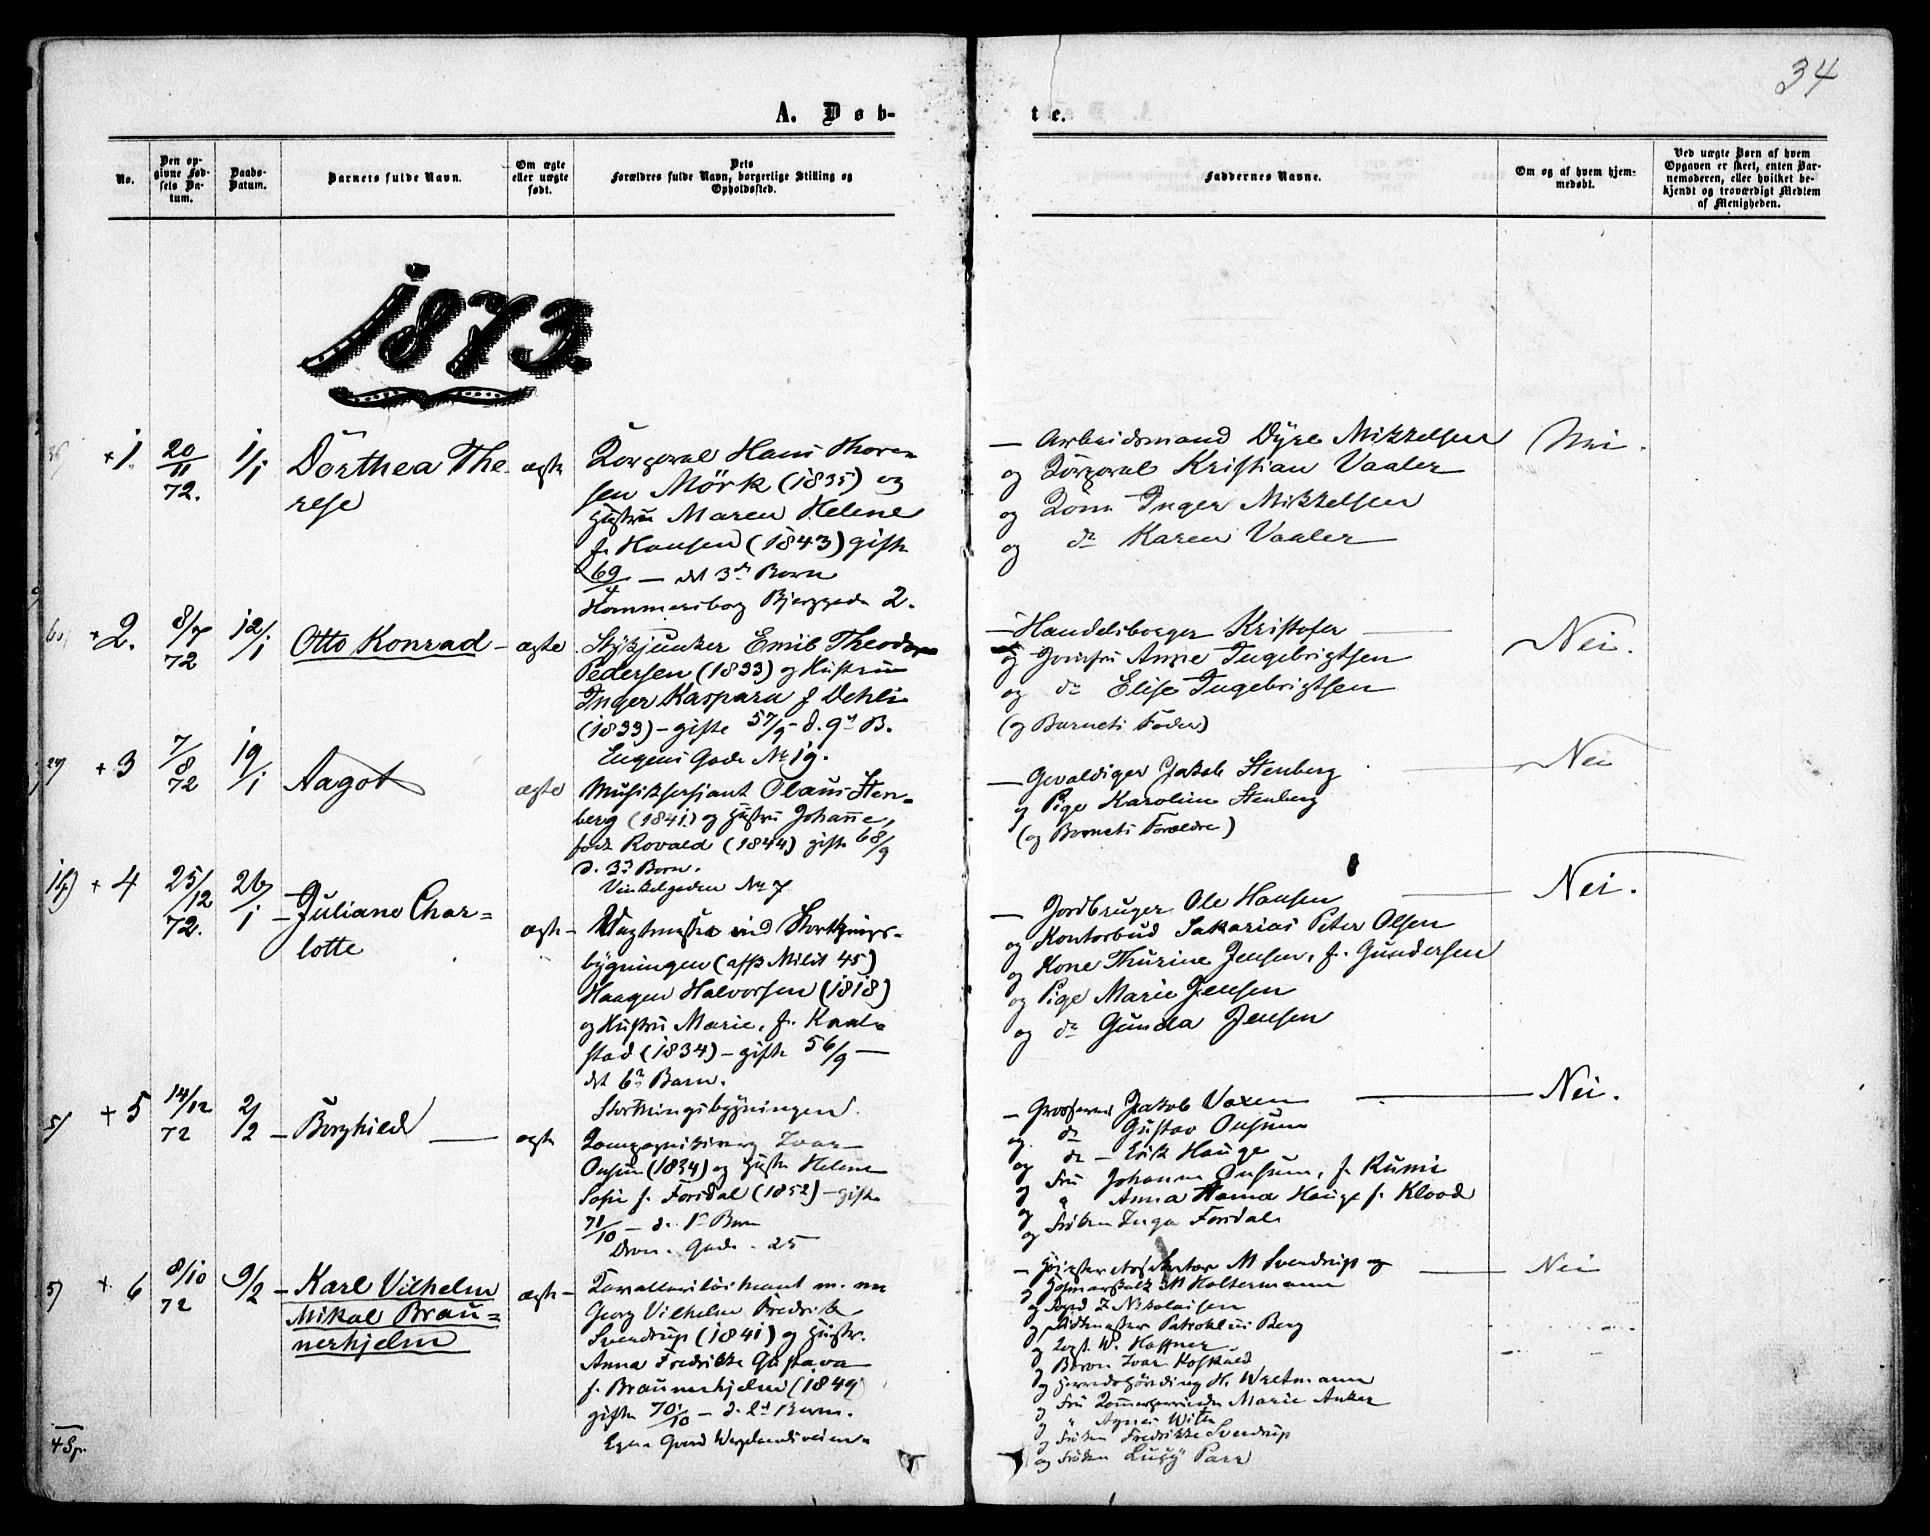 34
A. Døb-
te.
No.
Den op-
givne Fød-
sels Da-
tum.
Daabs-
Datum.
Barnets fulde Navn.
Om ægte
eller uægte
født.
Dets
Forældres fulde Navn, borgerlige Stilling og
Opholdssted.
Faddernes Navne.
Om og af hvem hjem-
medøbt.
Ved uægte Børn af hvem
Opgaven er skeet, enten Bar-
nemoderen, eller hvilket be-
kjendt og troværdigt Medlem
af Menigheden.
1873.
+1.
20/11
72.
1/1
Dorthea The-
rese
ægte
Korporal Hans Thore-
sen Mörk (1835) og
Hustru Maren Helene
f. Hansen (1843) gifte
69/4 — det 3de Barn
Hammersborg Bjerggade 2.
— Arbeidsmand Dyre Mikkelsen
og Korporal Kristian Vaaler
og Kone Inger Mikkelsen
og do Karen Vaaler
Nei.
+2.
8/7
72
12/1
Otto Konrad —
ægte
Stykjunker Emil Theodor
Pedersen (1833) og Hustru
Inger Kaspara f Dehli
(1833) — gifte 57/9 - d. 9de B.
Eugens Gade No 19.
— Handelsborger Kristofer —
og Jomfru Anne Ingebrigtsen
og do Elise Ingebrigtsen
(og Barnets Fader)
Nei.
+3
7/8
72
19/1
Aagot
ægte
Musiksersjant Olaus Sten-
berg (1841) og Hustru Johanne,
født Rovald (1844) gifte 68/9
d. 3de Barn.
Vinkelgaden No 7
— Gevaldiger Jakob Stenberg
og Pige Karoline Stenberg
(og Barnets Forældre)
Nei
+4
25/12
72.
26/1
— Juliane Char=
lotte
ægte —
Vagtmester ved Storthings-
bygningen (afsk Milit 45)
Haagen Halvorsen (1818)
og Hustru Marie, f. Kaal-
stad (1834) — gifte 56/9 —
det 6te Barn.
Storthingsbygningen.
— Jordbruger Ole Hansen
og Kontorbud Sakarias Peter Olsen
og Kone Thurine Jensen, f. Gundersen
og Pige Marie Jensen
og do Gunda Jensen
Nei.
+5
14/12
72
2/2
— Borghild —
ægte
Ivar
Onsum (1834) og Hustru Helene
Sofie f. Forsdal (1852) — gifte
71/10 — d. 1ste Barn
Gade - 25
— Grosserer Jakob Vaxen
og do Gustav Onsum
og do — Erik Hauge
og Fru Johanne Onsum, f. Kunie
og " Anna Hauge f. Klood
og Frøken Inga Forsdal
Nei.
+6
8/10
72
9/2
— Karl Vilhelm
Mikal Brau=
nerhjelm
ægte —
Georg Vilhelm Fredrik
Svendrup (1841) og Hustru
Anna Fredrikke Gustava
f. Braunerhjelm (1849)
gifte 70/10 — d. 2det Barn.
— M Svendrup og
og Hofmarskalk M Holtermann
og
og Ridtmester Patroklus Berg
og W. Haffner
og Baron Ivar
og H. Wretmann
og Fru Marie Anker
og " Agnes
og Frøken Fredrikke Svendrup
og Frøken Lucy Parr
Nei
4 Sp.